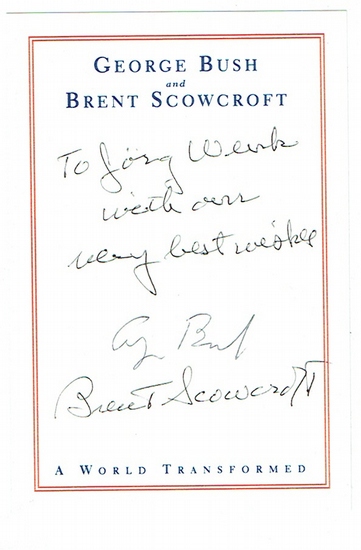 GEORGE BUSH
and
BRENT SCOWCROFT
To Jörg
with our
very best wishes
Brent Scowcroft
A WORLD TRANSFORMED